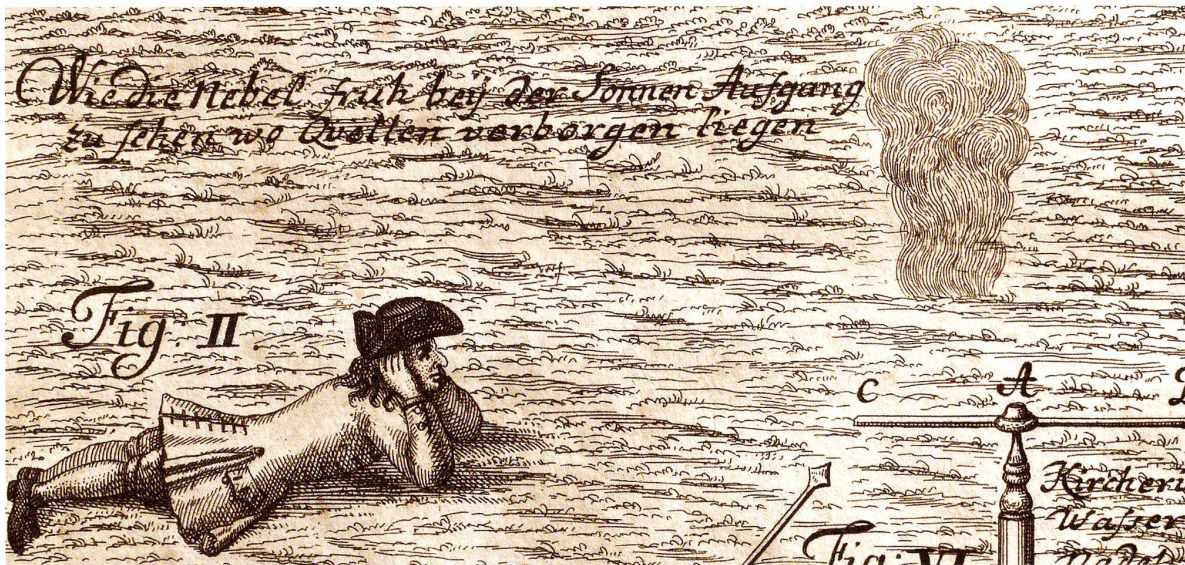 Wie die Nebel fruh beij der Sonnen Aufgang
zu sehen wo Qvellen verborgen liegen
Fig. II.
C A
Kircheri
Wasser
Fig. VI
Nadel